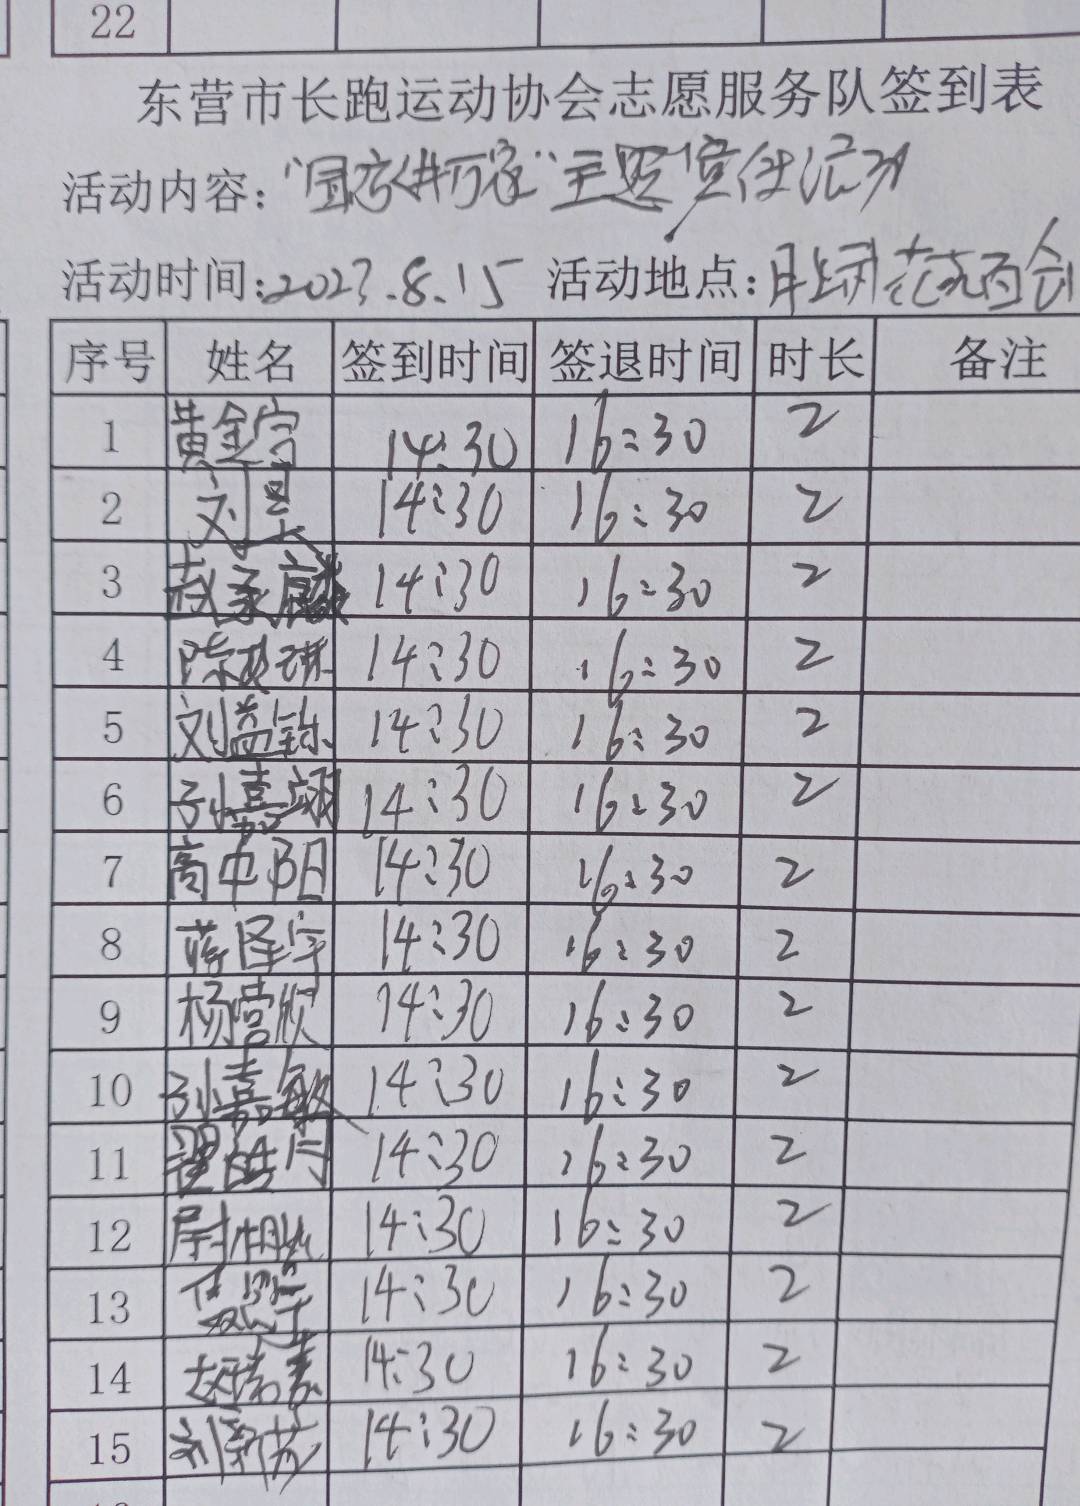 22
东营市长跑运动协会志愿服务队签到表
活动内容："国客进万家"主题宣传活动
活动时间:2023.8.15 活动地点:
序号 姓名 签到时间 签退时间 时长 备注
1 黄金宫 14:30 16:30 2
2 刘昊 14:30 16:30 2
3 14:30 16:30 2
4 14:30 16:30 2
5 刘益铄 14:30 16:30 2
6 孙嘉翊 14:30 16:30 2
7 高中阳 14:30 16:30 2
8 蒋泽宇 14:30 16:30 2
9 杨营欣 14:30 16:30 2
10 孙嘉敏 14:30 16:30 2
11 14:30 16:30 2
12 14:30 16:30 2
13 14:30 16:30 2
14 14:30 16:30 2
15 14:30 16:30 2